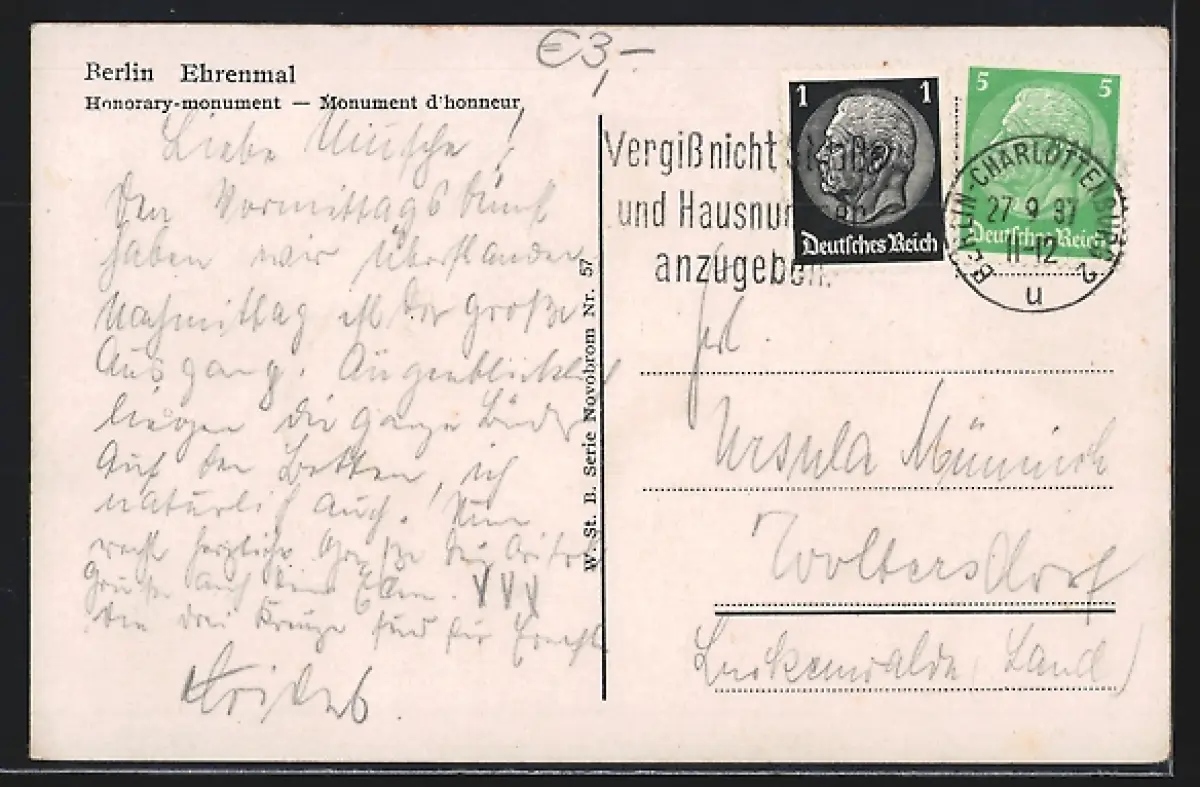 €3,-
Berlin Ehrenmal
Honorary-monument — Monument d'honneur
Liebe Muusche!
Den Vormittagsdienst
haben wir überstanden
Nachmittag ist der große
Ausgang. Augenblicklich
liegen die ganze
auf den Betten, ich
natürlich auch. Nun
recht herzliche Grüße Dein
Grüße auch
die drei Kreuze sind für
W. St. B. Serie Novobrom Nr. 57
Vergiß nicht Straße
und Hausnummer
anzugeben.
1 1
Deutsches Reich
5 5
Deutsches Reich
BERLIN-CHARLOTTENBURG 2
27 9 37
11-12
u
Frl.
Ursula Münnich
Woltersdorf
Luckenwalde, Land)